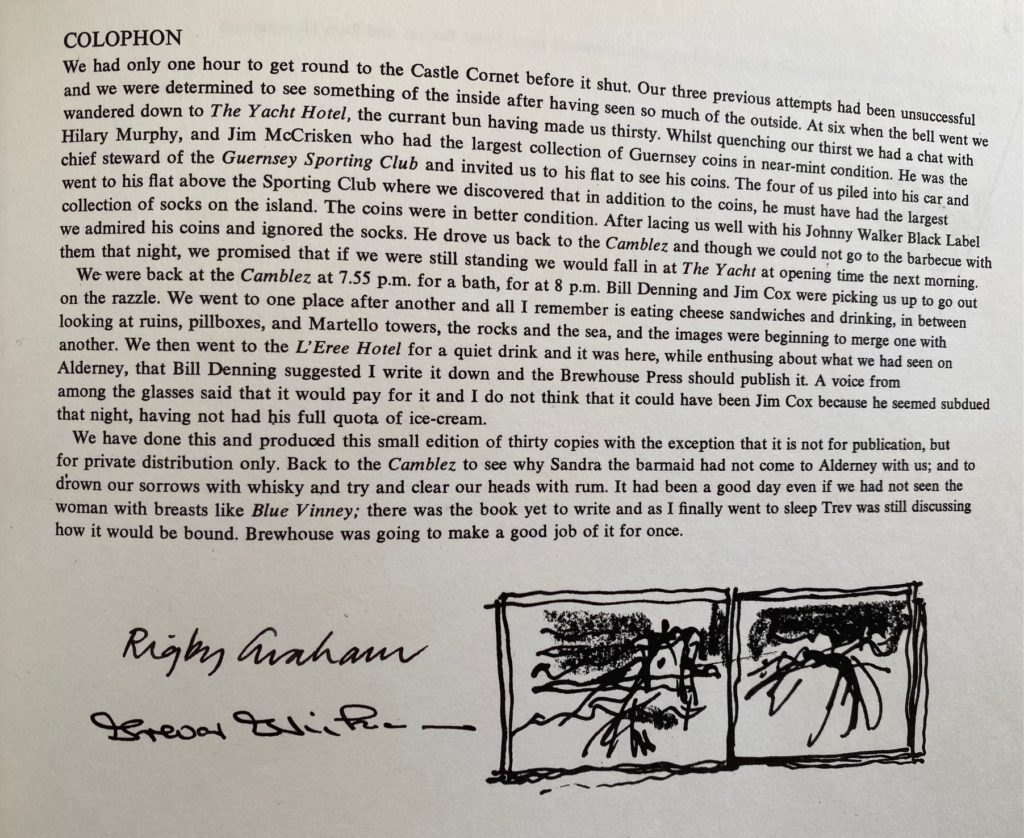 COLOPHON
We had only one hour to get round to the Castle Cornet before it shut. Our three previous attempts had been unsuccessful
and we were determined to see something of the inside after having seen so much of the outside. At six when the bell went we
wandered down to The Yacht Hotel, the currant bun having made us thirsty. Whilst quenching our thirst we had a chat with
Hilary Murphy, and Jim McCrisken who had the largest collection of Guernsey coins in near-mint condition. He was the
chief steward of the Guernsey Sporting Club and invited us to his flat to see his coins. The four of us piled into his car and
went to his flat above the Sporting Club where we discovered that in addition to the coins, he must have had the largest
collection of socks on the island. The coins were in better condition. After lacing us well with his Johnny Walker Black Label
we admired his coins and ignored the socks. He drove us back to the Camblez and though we could not go to the barbecue with
them that night, we promised that if we were still standing we would fall in at The Yacht at opening time the next morning.
We were back at the Camblez at 7.55 p.m. for a bath, for at 8 p.m. Bill Denning and Jim Cox were picking us up to go out
on the razzle. We went to one place after another and all I remember is eating cheese sandwiches and drinking, in between
looking at ruins, pillboxes, and Martello towers, the rocks and the sea, and the images were beginning to merge one with
another. We then went to the L'Eree Hotel for a quiet drink and it was here, while enthusing about what we had seen on
Alderney, that Bill Denning suggested I write it down and the Brewhouse Press should publish it. A voice from
among the glasses said that it would pay for it and I do not think that it could have been Jim Cox because he seemed subdued
that night, having not had his full quota of ice-cream.
We have done this and produced this small edition of thirty copies with the exception that it is not for publication, but
for private distribution only. Back to the Camblez to see why Sandra the barmaid had not come to Alderney with us; and to
drown our sorrows with whisky and try and clear our heads with rum. It had been a good day even if we had not seen the
woman with breasts like Blue Vinney; there was the book yet to write and as I finally went to sleep Trev was still discussing
how it would be bound. Brewhouse was going to make a good job of it for once.
Rigby Graham
Trevor